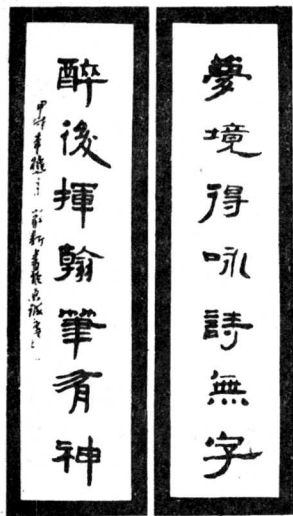 夢境得咏詩無字
醉後揮翰筆有神